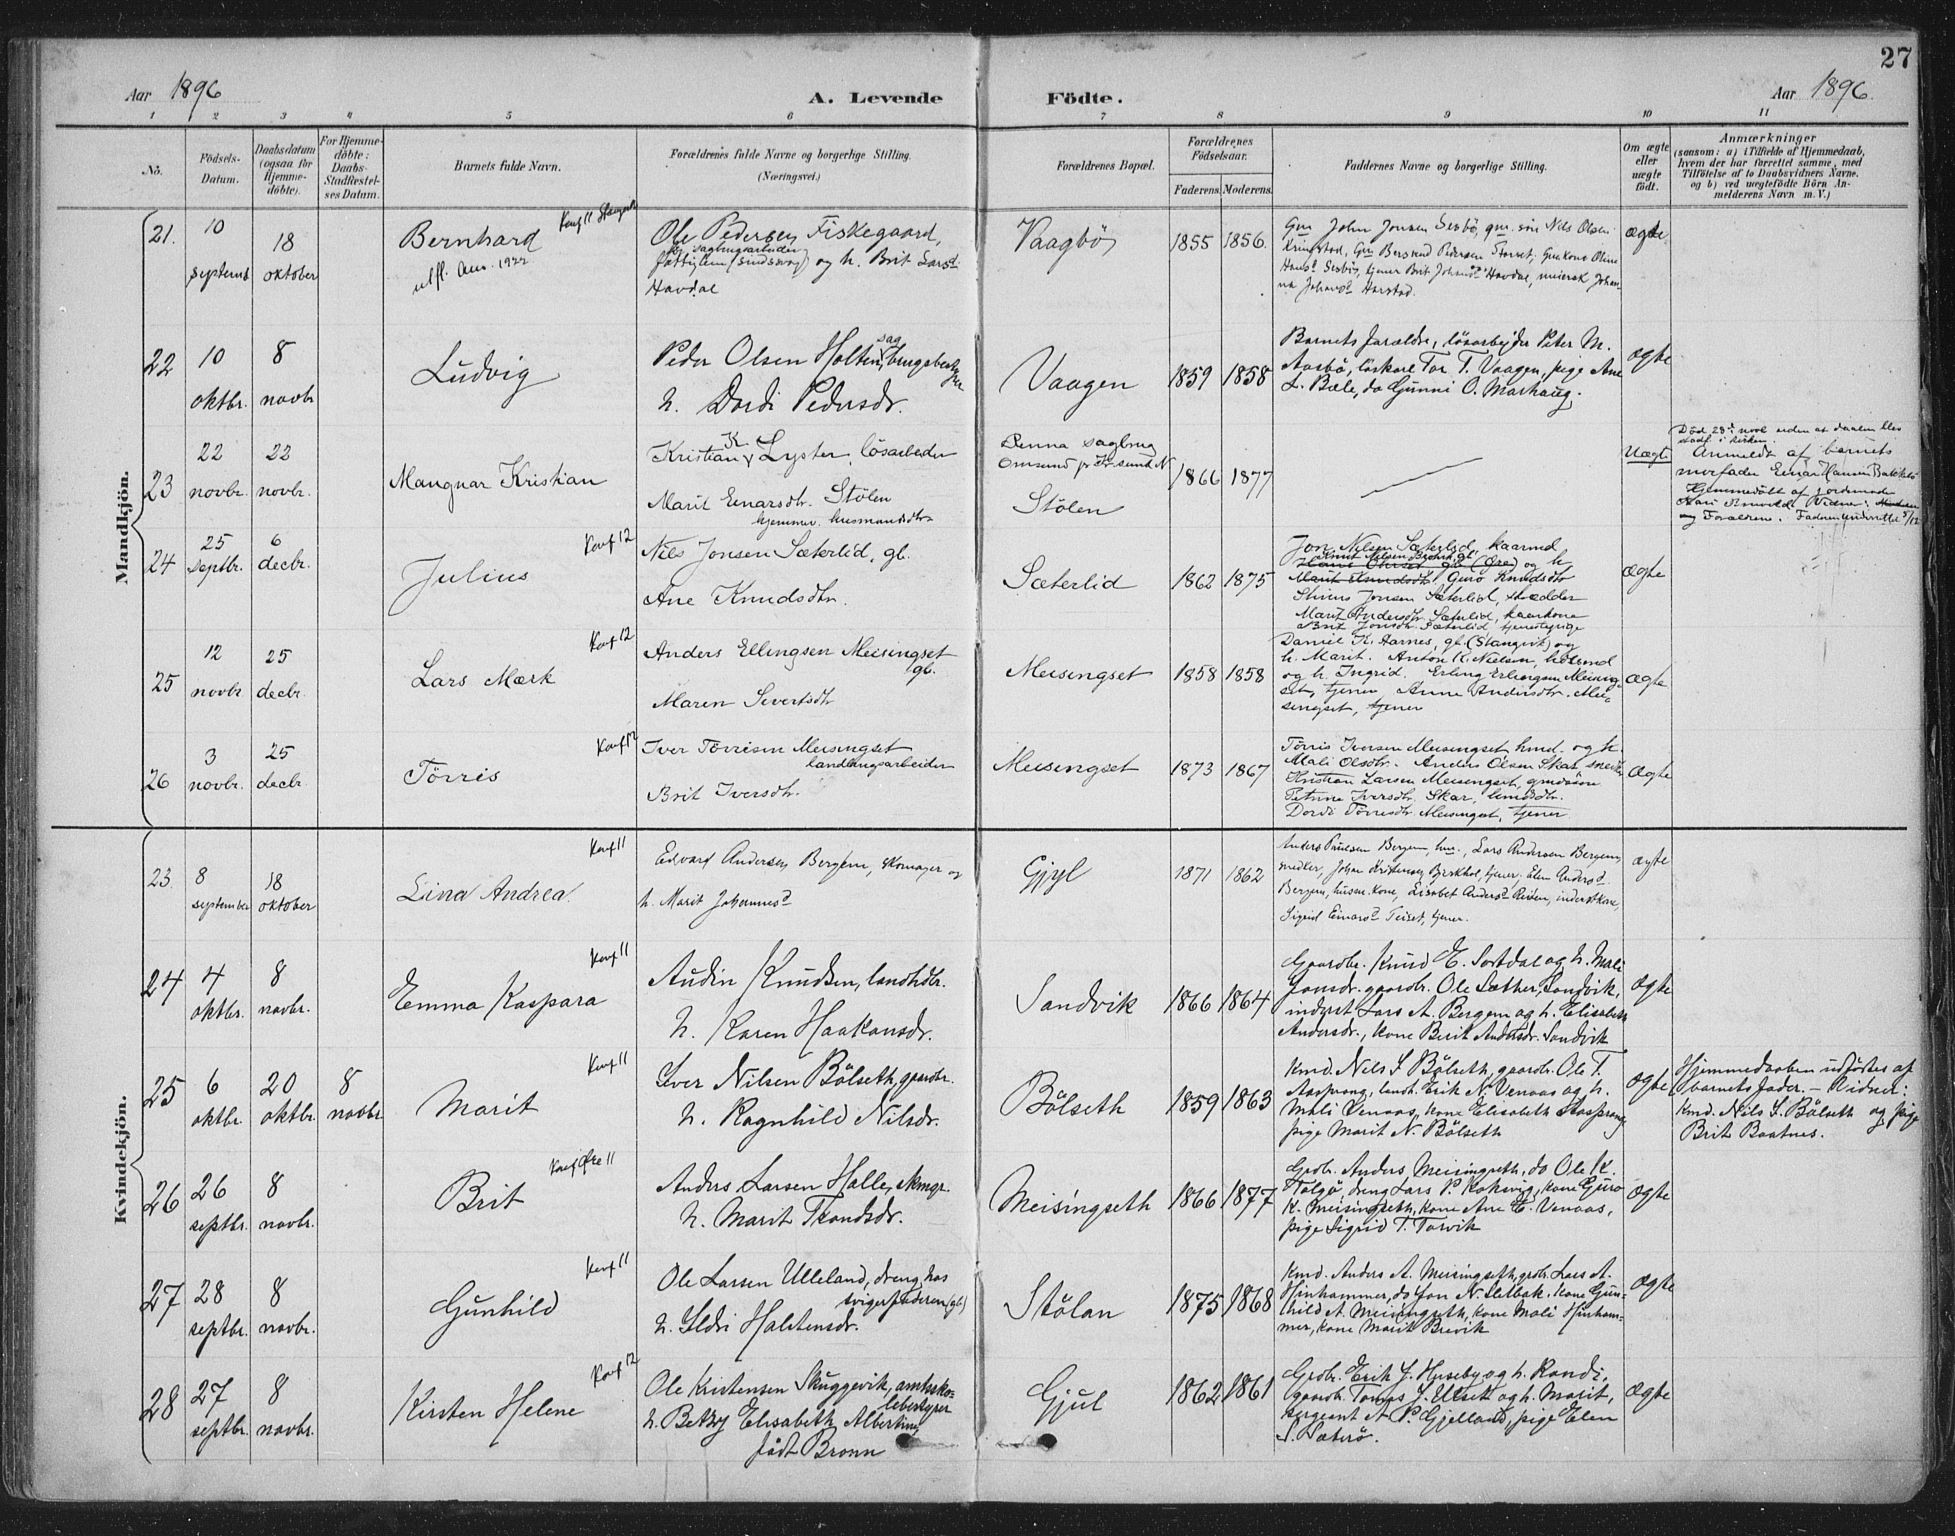 27
Aar 1896
A. Levende Födte.
Aar 1896.
1 2 3 4 5 6 7 8 9 10 11
No.
Födsels-
Datum.
Daabsdatum
(ogsaa for
Hjemme-
döbte).
For Hjemme-
döbte:
Daabs-
Stadfæstel-
ses Datum.
Barnets fulde Navn.
Forældrenes fulde Navne og borgerlige Stilling.
(Næringsvei.)
Forældrenes Bopæl.
Forældrenes
Födselsaar.
Faderens. Moderens.
Faddernes Navne og borgerlige Stilling.
Om ægte
eller
uægte
födt.
Anmærkninger
(saasom: a) i Tilfælde af Hjemmedaab,
hvem der har forrettet samme, med
Tilföielse af to Daabsvidners Navne.
og b) ved uægtefödte Börn An-
melderens Navn m. V.)
Mandkjön.
21.
10
septemb
18
oktober
Bernhard
Konf 11
utfl. Am. 1922
Ole Pedersen Fiskegaard,
og h. Brit Larsd
Havdal
Vaagbö
1855 1856.
Gm John Jonsen Sesbö, gm. sön Nils Olsen
Kringstad, Gm Bersvend Pedersen Storset, Gm kone Oline
Hansd Sesbö, tjener Brit Johansd Havdal, meiersk Johan-
na Johansd Harstad.
ægte
22
10
oktbr.
8
novbr
Ludvig
Peder Olsen Holten, sag-
brugsbestyrer
h. Dordi Pedersdr.
Vaagen
1859 1858
Barnets forældre, lösarbejder Peter M.
Aasbö, lörkarl Tor T. Vaagen, pige Ane
L. Bæle, do Gunni O. Marhaug.
ægte
23
22
novbr.
22
novbr.
Mangnar Kristian
Kristian K. Lyster, lösarbeider
Marit Einarsdtr. Stölen
hjemmev. husmandsdtr
Denna sagbrug
Omsund pr Kr.sund N
Stölen
1866 1877
Uægte
Död 23d novb uden at daaben blev
stadf. i kirken.
Anmeldt af barnets
morfader Einar Hansen
Hjemmedöbt af jordmoder
og Forældrene. Faderen underrettet 5/12
24
25
septbr.
6
decbr.
Julius
Konf 12
Nils Jonsen Sæterlid, gb.
Ane Knudsdtr.
Sæterlid
1862 1875
Jon Nilsen Sæterlid, kaarmd
og h.
Guro Knudsdtr
Jonsen Sæterlid, skrædder
Marit Andersdtr. Sæterlid, kaarkone
Brit Jonsdtr. Sæterlid tjenestepige
Ægte
25
12
novbr
25
decbr.
Lars Mærk
Konf 12
Anders Ellingsen Meisingset
gb.
Maren Sivertsdtr
Meisingset
1858 1858
Daniel K. Aarnes, gb. (Stangvik) og
h. Marit. Anton K. Nielsen,
og h. Ingrid. Erling Erlingsen Meising-
set, tjener, Anne Andersdtr. Mei-
singset, tjener
Ægte
26
3
novbr.
25
decbr.
Törris
Konf 12
Iver Törrisen Meisingset
landbrugsarbeider
Brit Iversdtr.
Meisingset
1873 1867
Törris Iversen Meisingset hmd. og h.
Mali Olsdtr. Anders Olsen Skar snedker
Kristian Larsen Meisingset, gmdssön
Petrine Iversdtr. Skar, hmdsdtr.
Dordi Törrisdtr. Meisingset, tjener
Ægte
Kvindekjön.
23.
8
september
18
oktober
Lina Andrea.
Konf 11
Edvard Andersen Bergem, skomager og
h. Marit Johannesd
Gjyl
1871 1862
Anders Paulsen Bergem, hm., Lars Andersen Bergem,
snedker, Johan Kristensen Birkhol, tjener, Elen Andersd
Bergem, husm.kone, Lisabet Andersd Reiten, inderstkone,
Sigrid Einarsd Teiset, tjener.
ægte
24
4
oktbr.
8
novbr.
Emma Kaspara
Konf 11
Audin Knudsen, landhdlr.
h. Karen Haakonsdr.
Sandvik
1866 1864
Gaardbr. Knud E. Sortdal og h. Mali
Jonsdr. gaardbr. Ole Sæther, Sandvik,
inderst Lars A. Bergem og h. Elisabeth
Andersdr., kone Berit Andersdr. Sandvik
Ægte
25
6
oktbr.
20
oktbr.
8
novbr.
Marit
Konf 11
Iver Nilsen Bölseth, gaardbr.
h. Ragnhild Nilsdr.
Bölseth
1859 1863
Kmd. Nels I Bölseth, gaardbr. Ole T.
Aasprong, landh. Erik N. Venaas og h.
Mali Venaas, kone Elisabeth Aasprong
pige Marit N. Bölseth
Ægte
Hjemmedaaben udförtes af
barnets fader. – Vidner:
Kmd. Nils I. Bölseth og pige
Brit Baatnes.
26
26
septbr.
8
novbr.
Brit
Konf Öre 11
Anders Larsen Halle, skmgr.
h. Marit Trondsdr.
Meisingseth
1866 1877
Grdbr. Anders Meisingseth, do Ole K.
Stolgö, dreng Lars P. Koksvig, kone Guro
K. Meisingseth, kone Ane E. Venaas,
pige Sigrid T. Torvik
Ægte
27
28
septbr.
8
novbr.
Gunhild
Konf 11
Ole Larsen Ulleland, dreng hos
svigerfaderen (gb)
h. Ildri Halstensdr.
Stölan
1875 1868
Kmd. Anders A. Meisingseth, grdbr. Lars A.
Hinhammer, do Jon N. Slatbak, kone Gun-
hild A. Meisingseth, kone Mali Hinham-
mer, kone Marit Brevik
Ægte
28
27
septbr.
8
novbr.
Kirsten Helene
Konf 12
Ole Kristensen Skuggevik, amtssko-
lebestyrer
h. Betzy Elisabeth Albertine
födt Bronn
Gjul
1862 1861
Grdbr. Erik J. Hyseby og h. Randi,
gaardb. Tomas J. Ulset og h. Marit,
sergeant A P. Gjelland, pige Elen
S. Sæterö.
Ægte